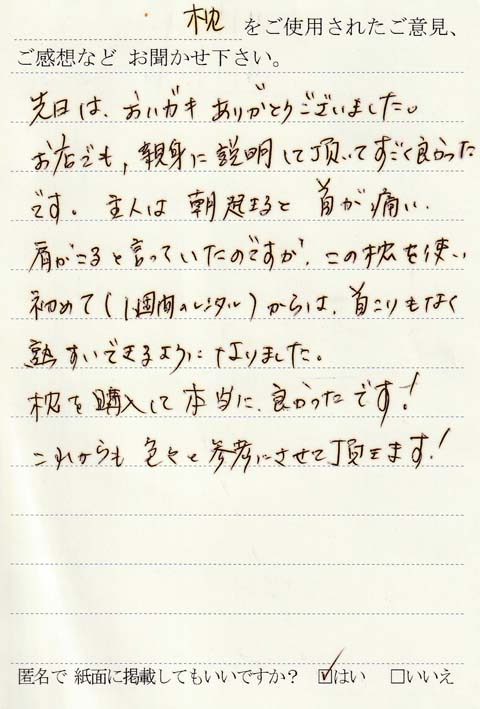 枕 をご使用されたご意見、
ご感想など お聞かせ下さい。
先日は、おハガキ ありがとうございました。
お店でも、親身に説明して頂いてすごく良かった
です。主人は 朝起きると 首が痛い、
肩がこると言っていたのですが、この枕を使い
初めて(1週間のレンタル)からは、首こりもなく
熟すいできるようになりました。
枕を購入して本当に、良かったです!
これからも 色々と参考にさせて頂きます!
匿名で 紙面に掲載してもいいですか? ☑はい □いいえ